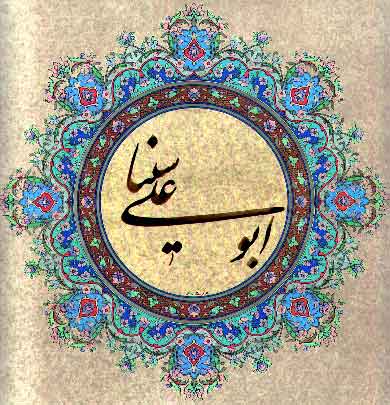 ابو علی سینا